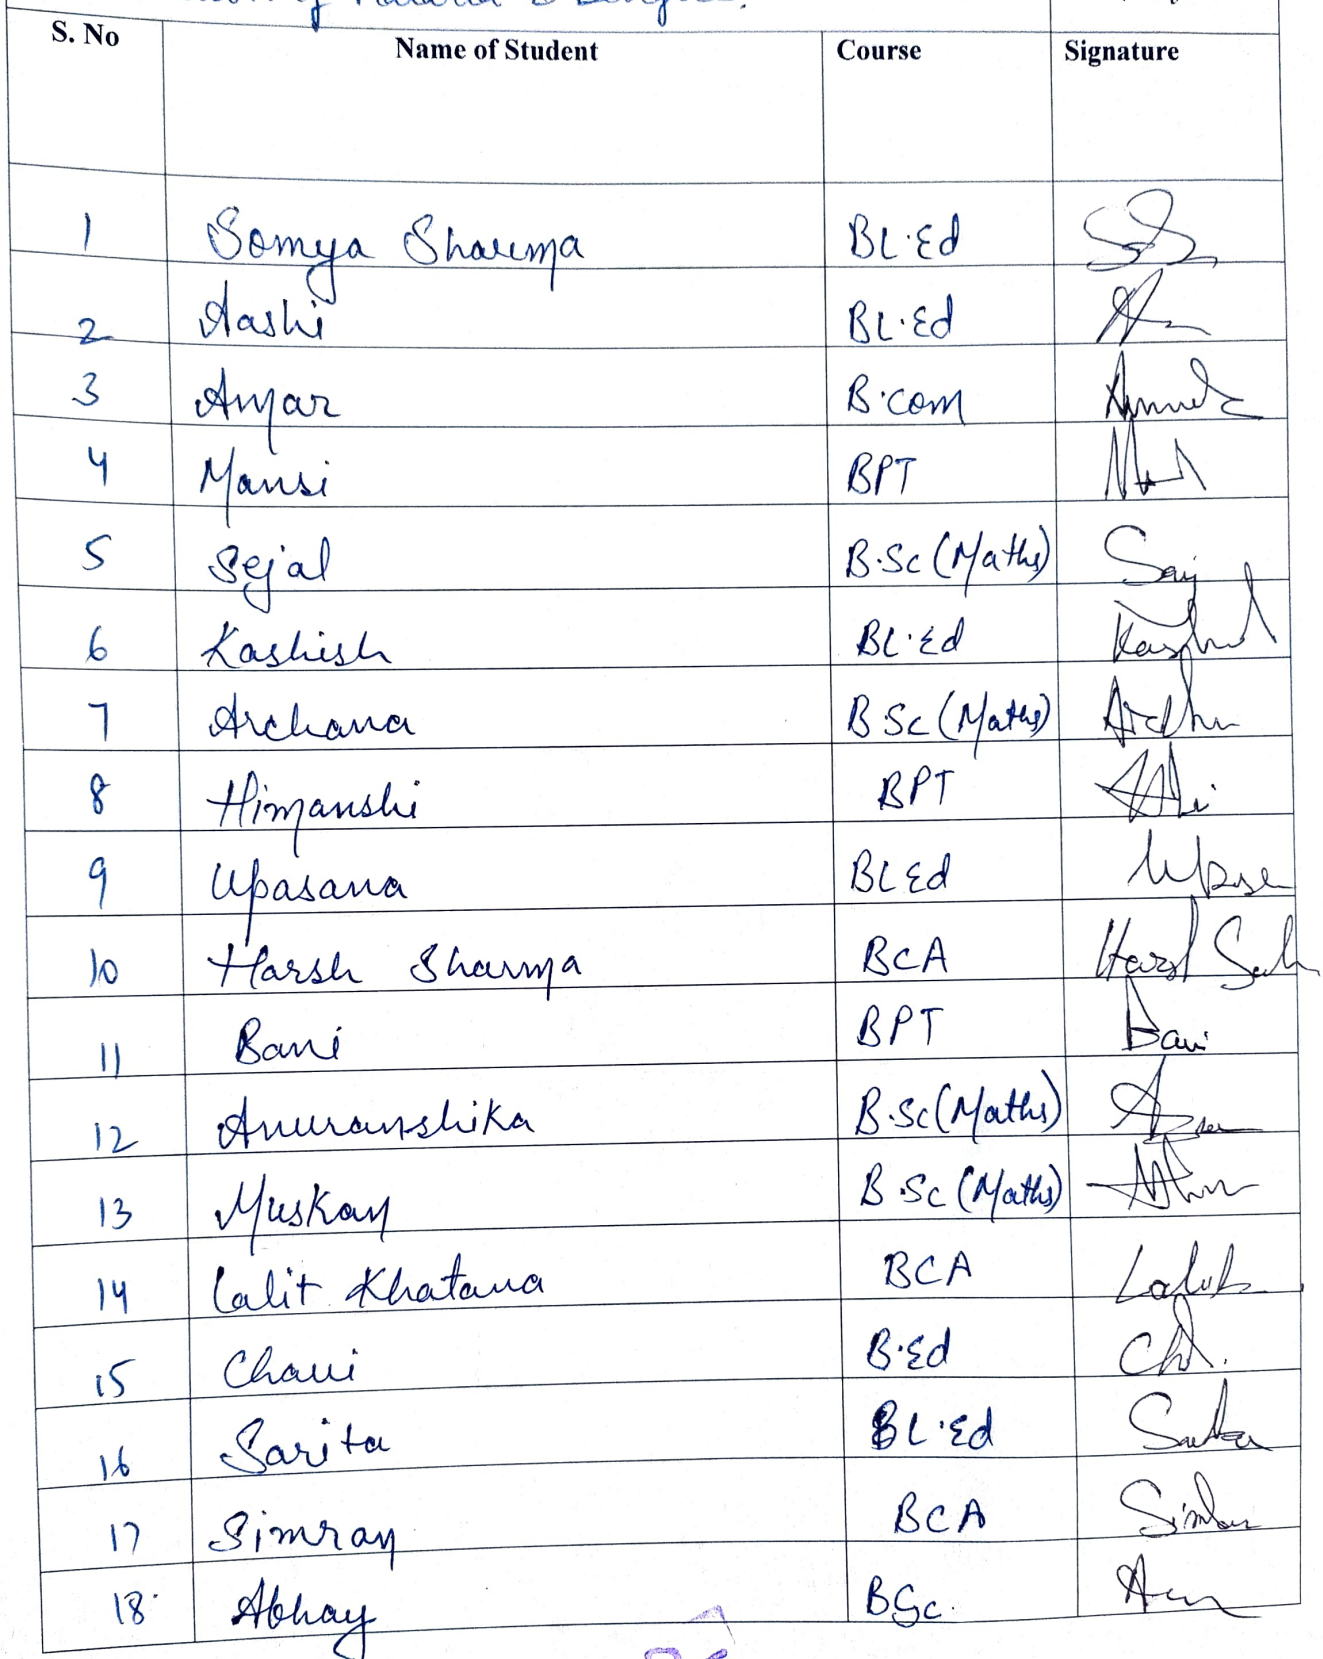 S. No Name of Student Course Signature
1 Somya Sharma BL.Ed
2 Aashi BL.Ed
3 Anjar B.com
4 Mansi BPT
5 Sejal B.Sc (Maths)
6 Kashish BL.Ed
7 Archana B Sc (Maths)
8 Himanshi BPT
9 Upasana BL Ed
10 Harsh Sharma BCA
11 Bani BPT Bani
12 Anuranshika B.Sc (Maths)
13 Muskan B.Sc (Maths)
14 Lalit Khatana BCA
15 Chavi B.Ed
16 Sarita BL.Ed
17 Simran BCA
18. Abhay BSc.